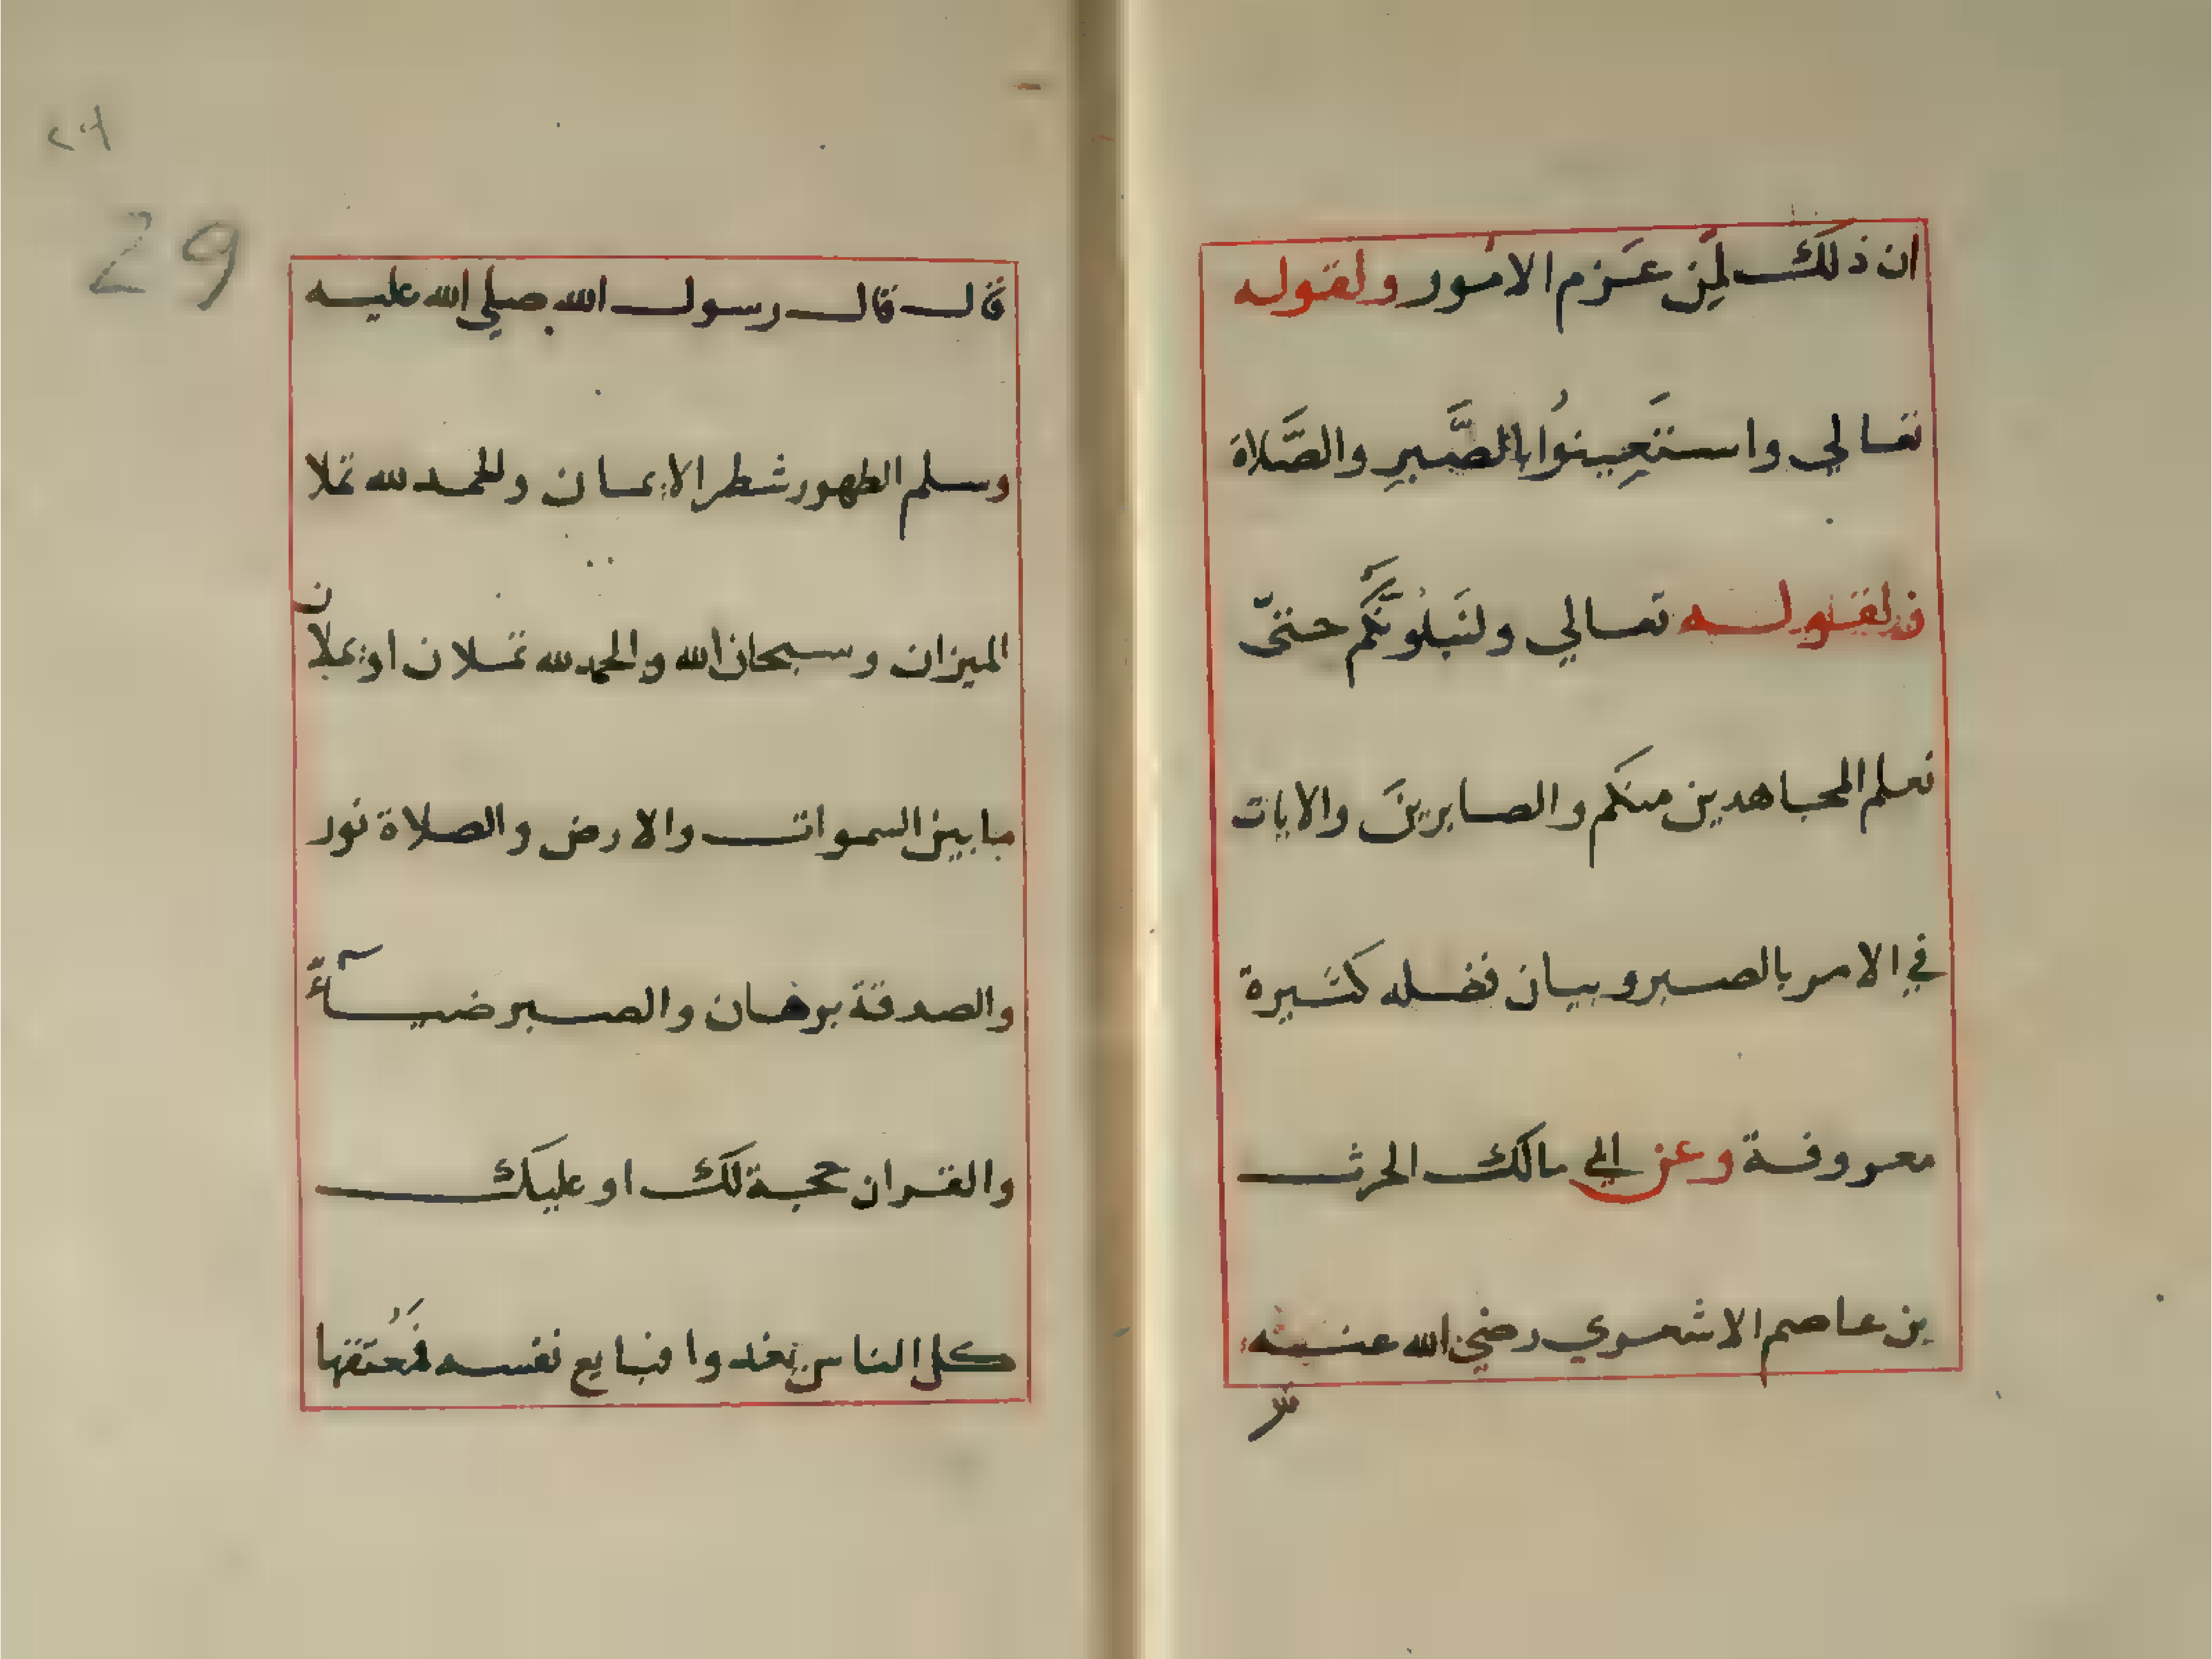 ان ذلك لمِن عَزم الامُور ولقوله
تعالي واستَعِينوُا بالصَّبرِ والصَّلاة
ولقوله تعالي ولنَبلُونَّكُم حتىّ
نعلم المجاهدين منكم والصابرينَ والايات
في الامر بالصبر وبيان فضله كثيرة
معروفة وعن ابي مالك الحرث
بن عاصم الاشعري رضي الله عنه
29
٢٩
قال قال رسول الله صلي الله عليه
وسلم الطهور شطر الايمان والحمد لله تملا
الميزان وسبحان الله والحمد لله تملان او تملان
ما بين السموات والارض والصلاة نور
والصدقة برهان والصبر ضيآءً
والقران حجة لك او عليك
كل الناس يغدوا فبايع نفسه فمُعتقها